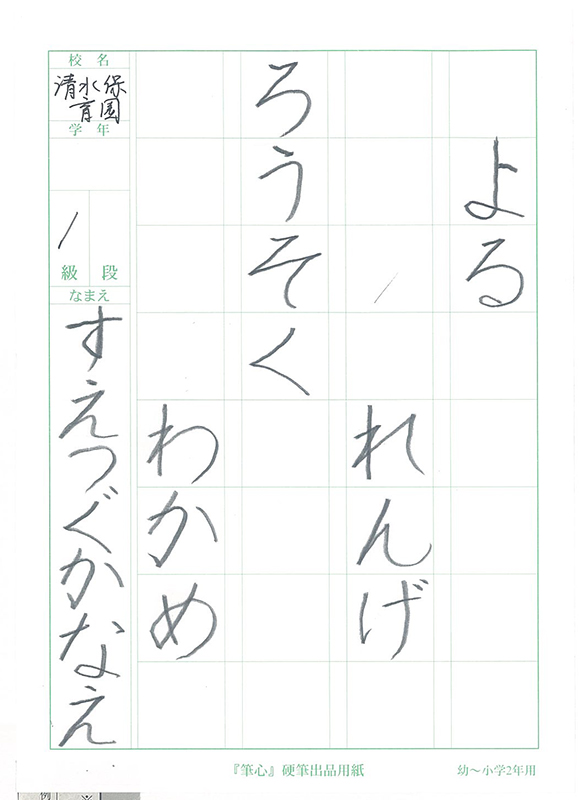 よる
れんげ
ろうそく
わかめ
校名
清水保
育園
学年
級 段
なまえ
すえつぐかなえ
『筆心』硬筆出品用紙
幼〜小学2年用